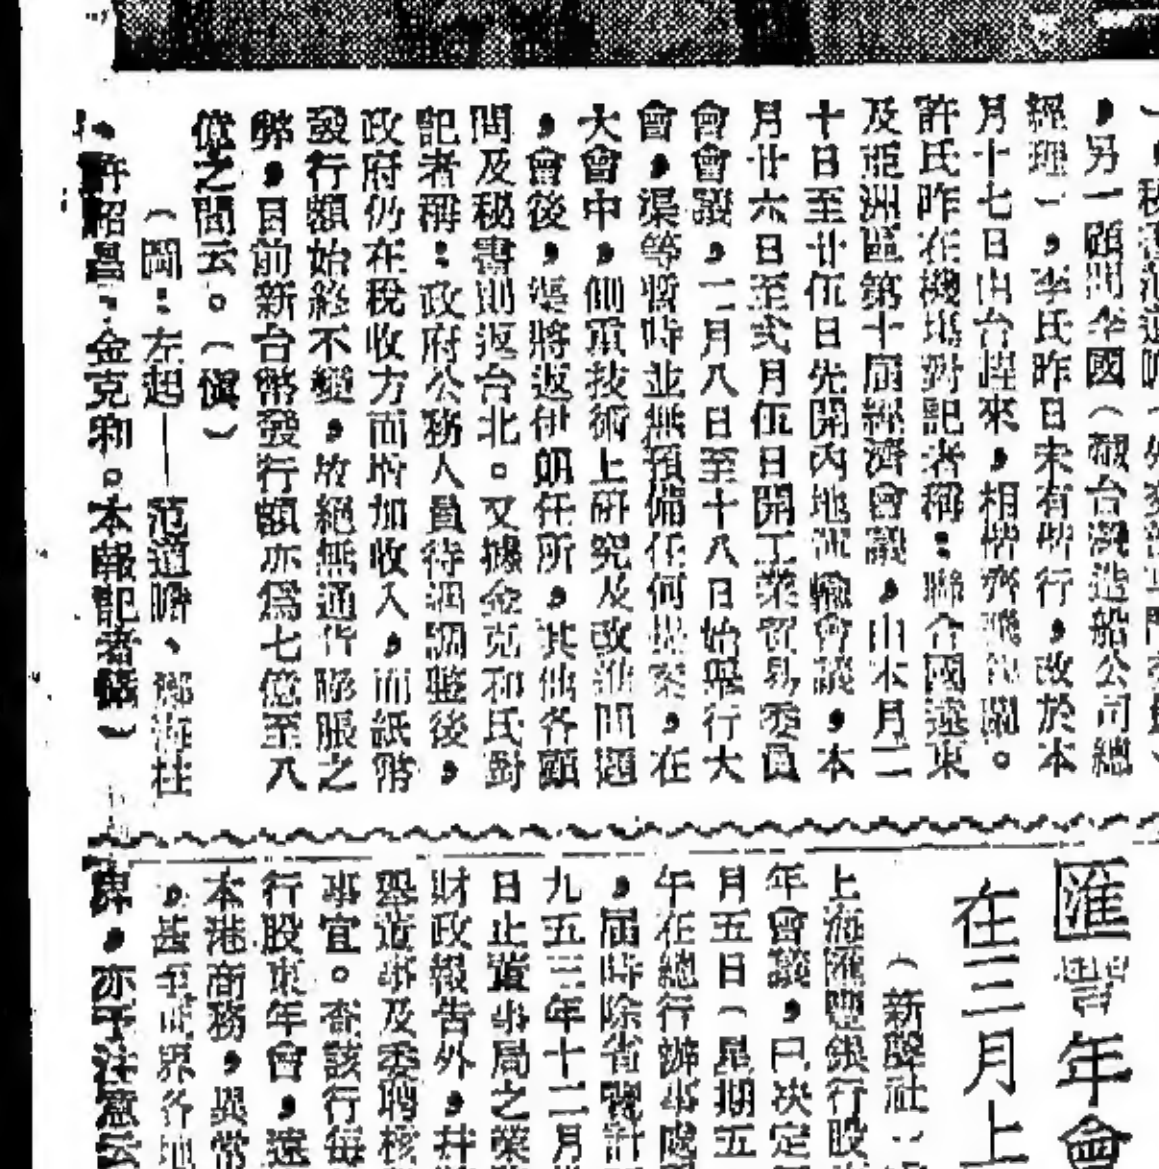 ，另一顧問李國（台灣造船公司總
經理），李氏昨日未有偕行，改於本
月十七日由台蹚來，相偕齊飛
許氏昨在機場對記者稱：聯合國遠東
及亞洲區第十屆經濟會議，由本月二
十日至廿伍日先開內地運輸會議，本
月廿六日至弍月伍日開工業貿易委員
會會議，二月八日至十八日始舉行大
會，渠等暫時並無預備任何提案，在
大會中，側重技術上研究及改進問題
，會後，渠將返任所，其他各顧
問及秘書則返台北。又據金克和氏對
記者稱：政府公務人員待遇調整後，
政府仍在稅收方面增加收入，而紙幣
發行額始終不變，故絕無通貨膨脹之
弊，目前新台幣發行額亦為七億至八
億之間云。（慎）
（圖：左起——范道瞻、鄭海柱
、許紹昌、金克和。本報記者攝）
匯豐年會
在三月上
（新聲社
上海匯豐銀行股
年會議，已決定
月五日（星期五
午在總行辦事處
，屆時除省覽
九五三年十二月
日止董事局之業
財政報告外，并
舉董事及委聘核
事宜。查該行每
行股東年會，遠
本港商務，與常
，甚至世界各地
界，亦予注意云